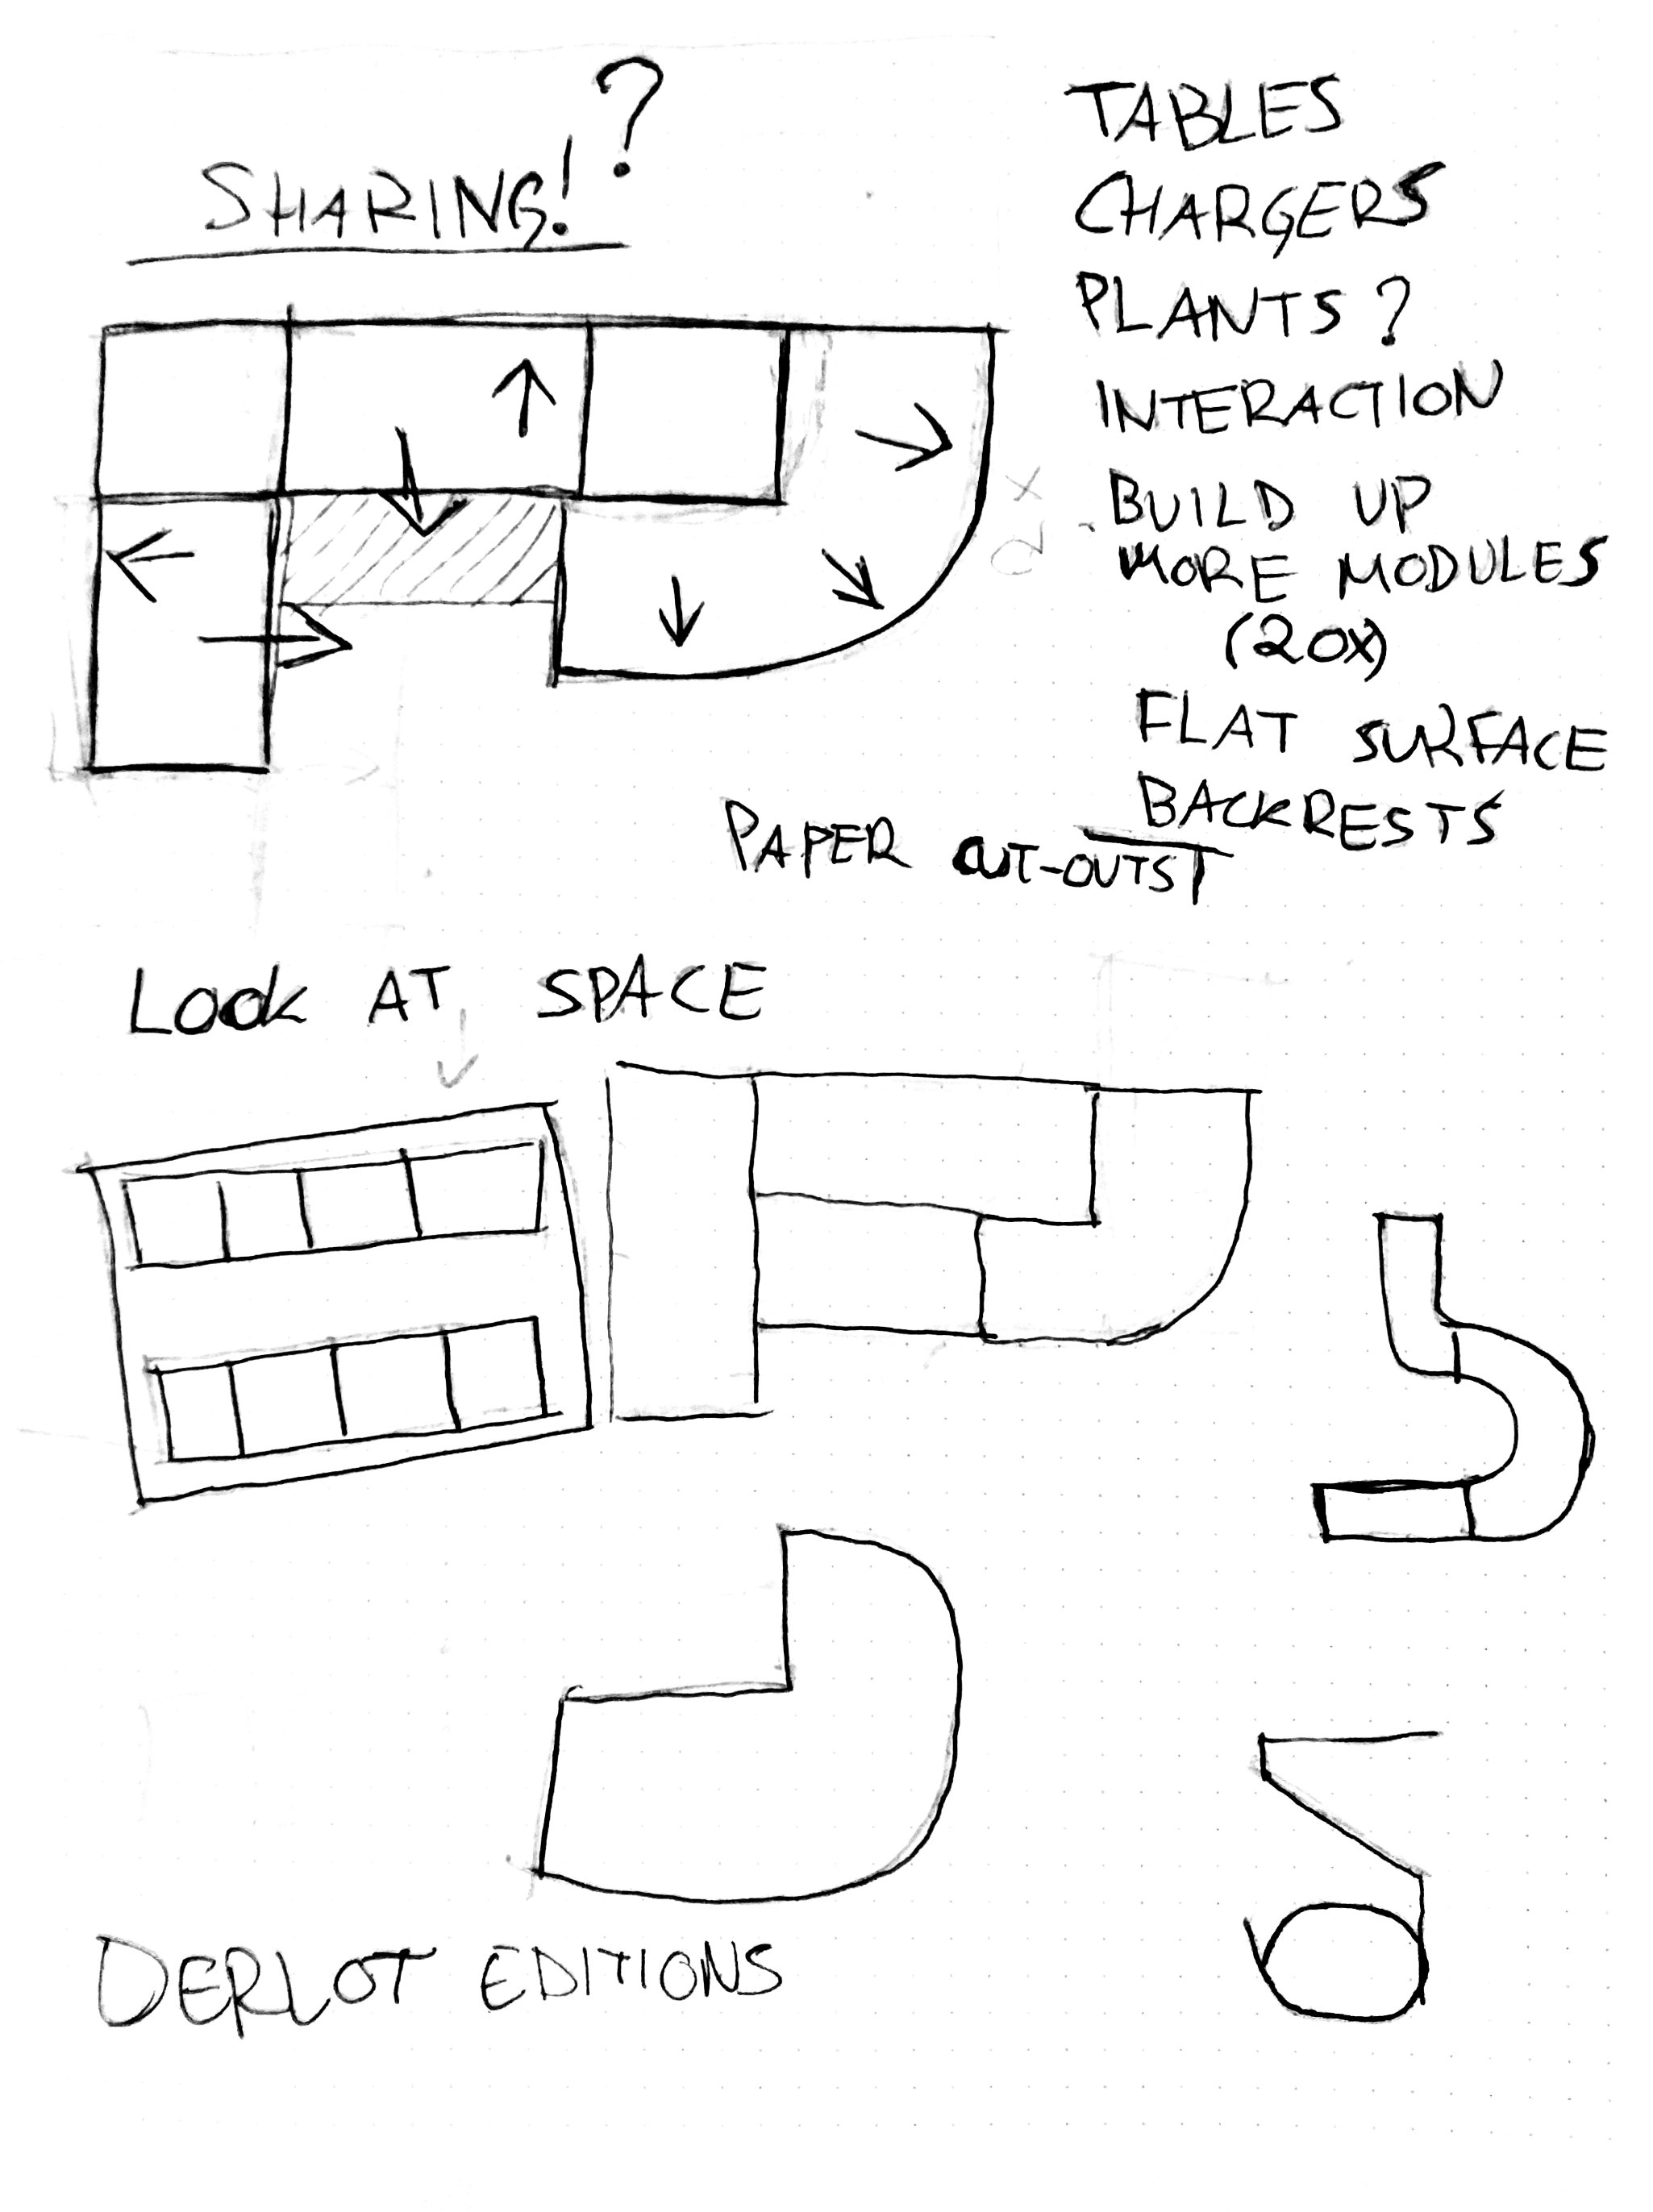 SHARING!?
TABLES
CHARGERS
PLANTS?
INTERACTION
BUILD UP
MORE MODULES
(20X)
FLAT SURFACE
BACKRESTS
PAPER CUT-OUTS
LOOK AT SPACE
DERLOT EDITIONS